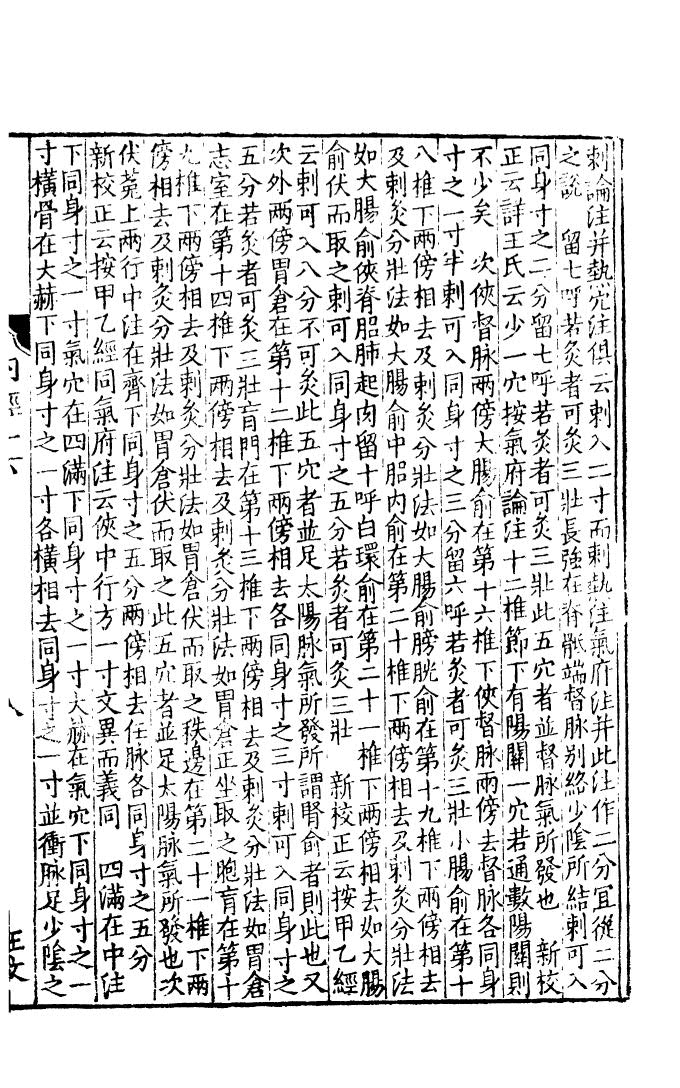 刺論注并熱穴注俱云刺入二寸而刺熱注氣府注并此注作二分宜從二分
之說　留七呼若灸者可灸三壯長強在脊骶端督脉別絡少陰所結刺可入
同身寸之二分留七呼若灸者可灸三壯此五穴者並督脉氣所發也　新校
正云詳王氏云少一穴按氣府論注十二椎節下有陽關一穴若通數陽關則
不少矣　次俠督脉兩傍大腸俞在第十六椎下俠督脉兩傍去督脉各同身
寸之一寸半刺可入同身寸之三分留六呼若灸者可灸三壯小腸俞在第十
八椎下兩傍相去及刺灸分壯法如大腸俞膀胱俞在第十九椎下兩傍相去
及刺灸分壯法如大腸俞中䏚內俞在第二十椎下兩傍相去及刺灸分壯法
如大腸俞俠脊䏚肺起肉留十呼白環俞在第二十一椎下兩傍相去如大腸
俞伏而取之刺可入同身寸之五分若灸者可灸三壯　新校正云按甲乙經
云刺可入八分不可灸此五穴者並足太陽脉氣所發所謂腎俞者則此也又
次外兩傍胃倉在第十二椎下兩傍相去各同身寸之三寸刺可入同身寸之
五分若灸者可灸三壯肓門在第十三椎下兩傍相去及刺灸分壯法如胃倉
志室在第十四椎下兩傍相去及刺灸分壯法如胃倉正坐取之胞肓在第十
九椎下兩傍相去及刺灸分壯法如胃倉伏而取之秩邊在第二十一椎下兩
傍相去及刺灸分壯法如胃倉伏而取之此五穴者並足太陽脉氣所發也次
伏菟上兩行中注在齊下同身寸之五分兩傍相去任脉各同身寸之五分
新校正云按甲乙經同氣府注云俠中行方一寸文異而義同　四滿在中注
下同身寸之一寸氣穴在四滿下同身寸之一寸大赫在氣穴下同身寸之一
寸橫骨在大赫下同身寸之一寸各橫相去同身寸之一寸並衝脉足少陰之
內經十六
八